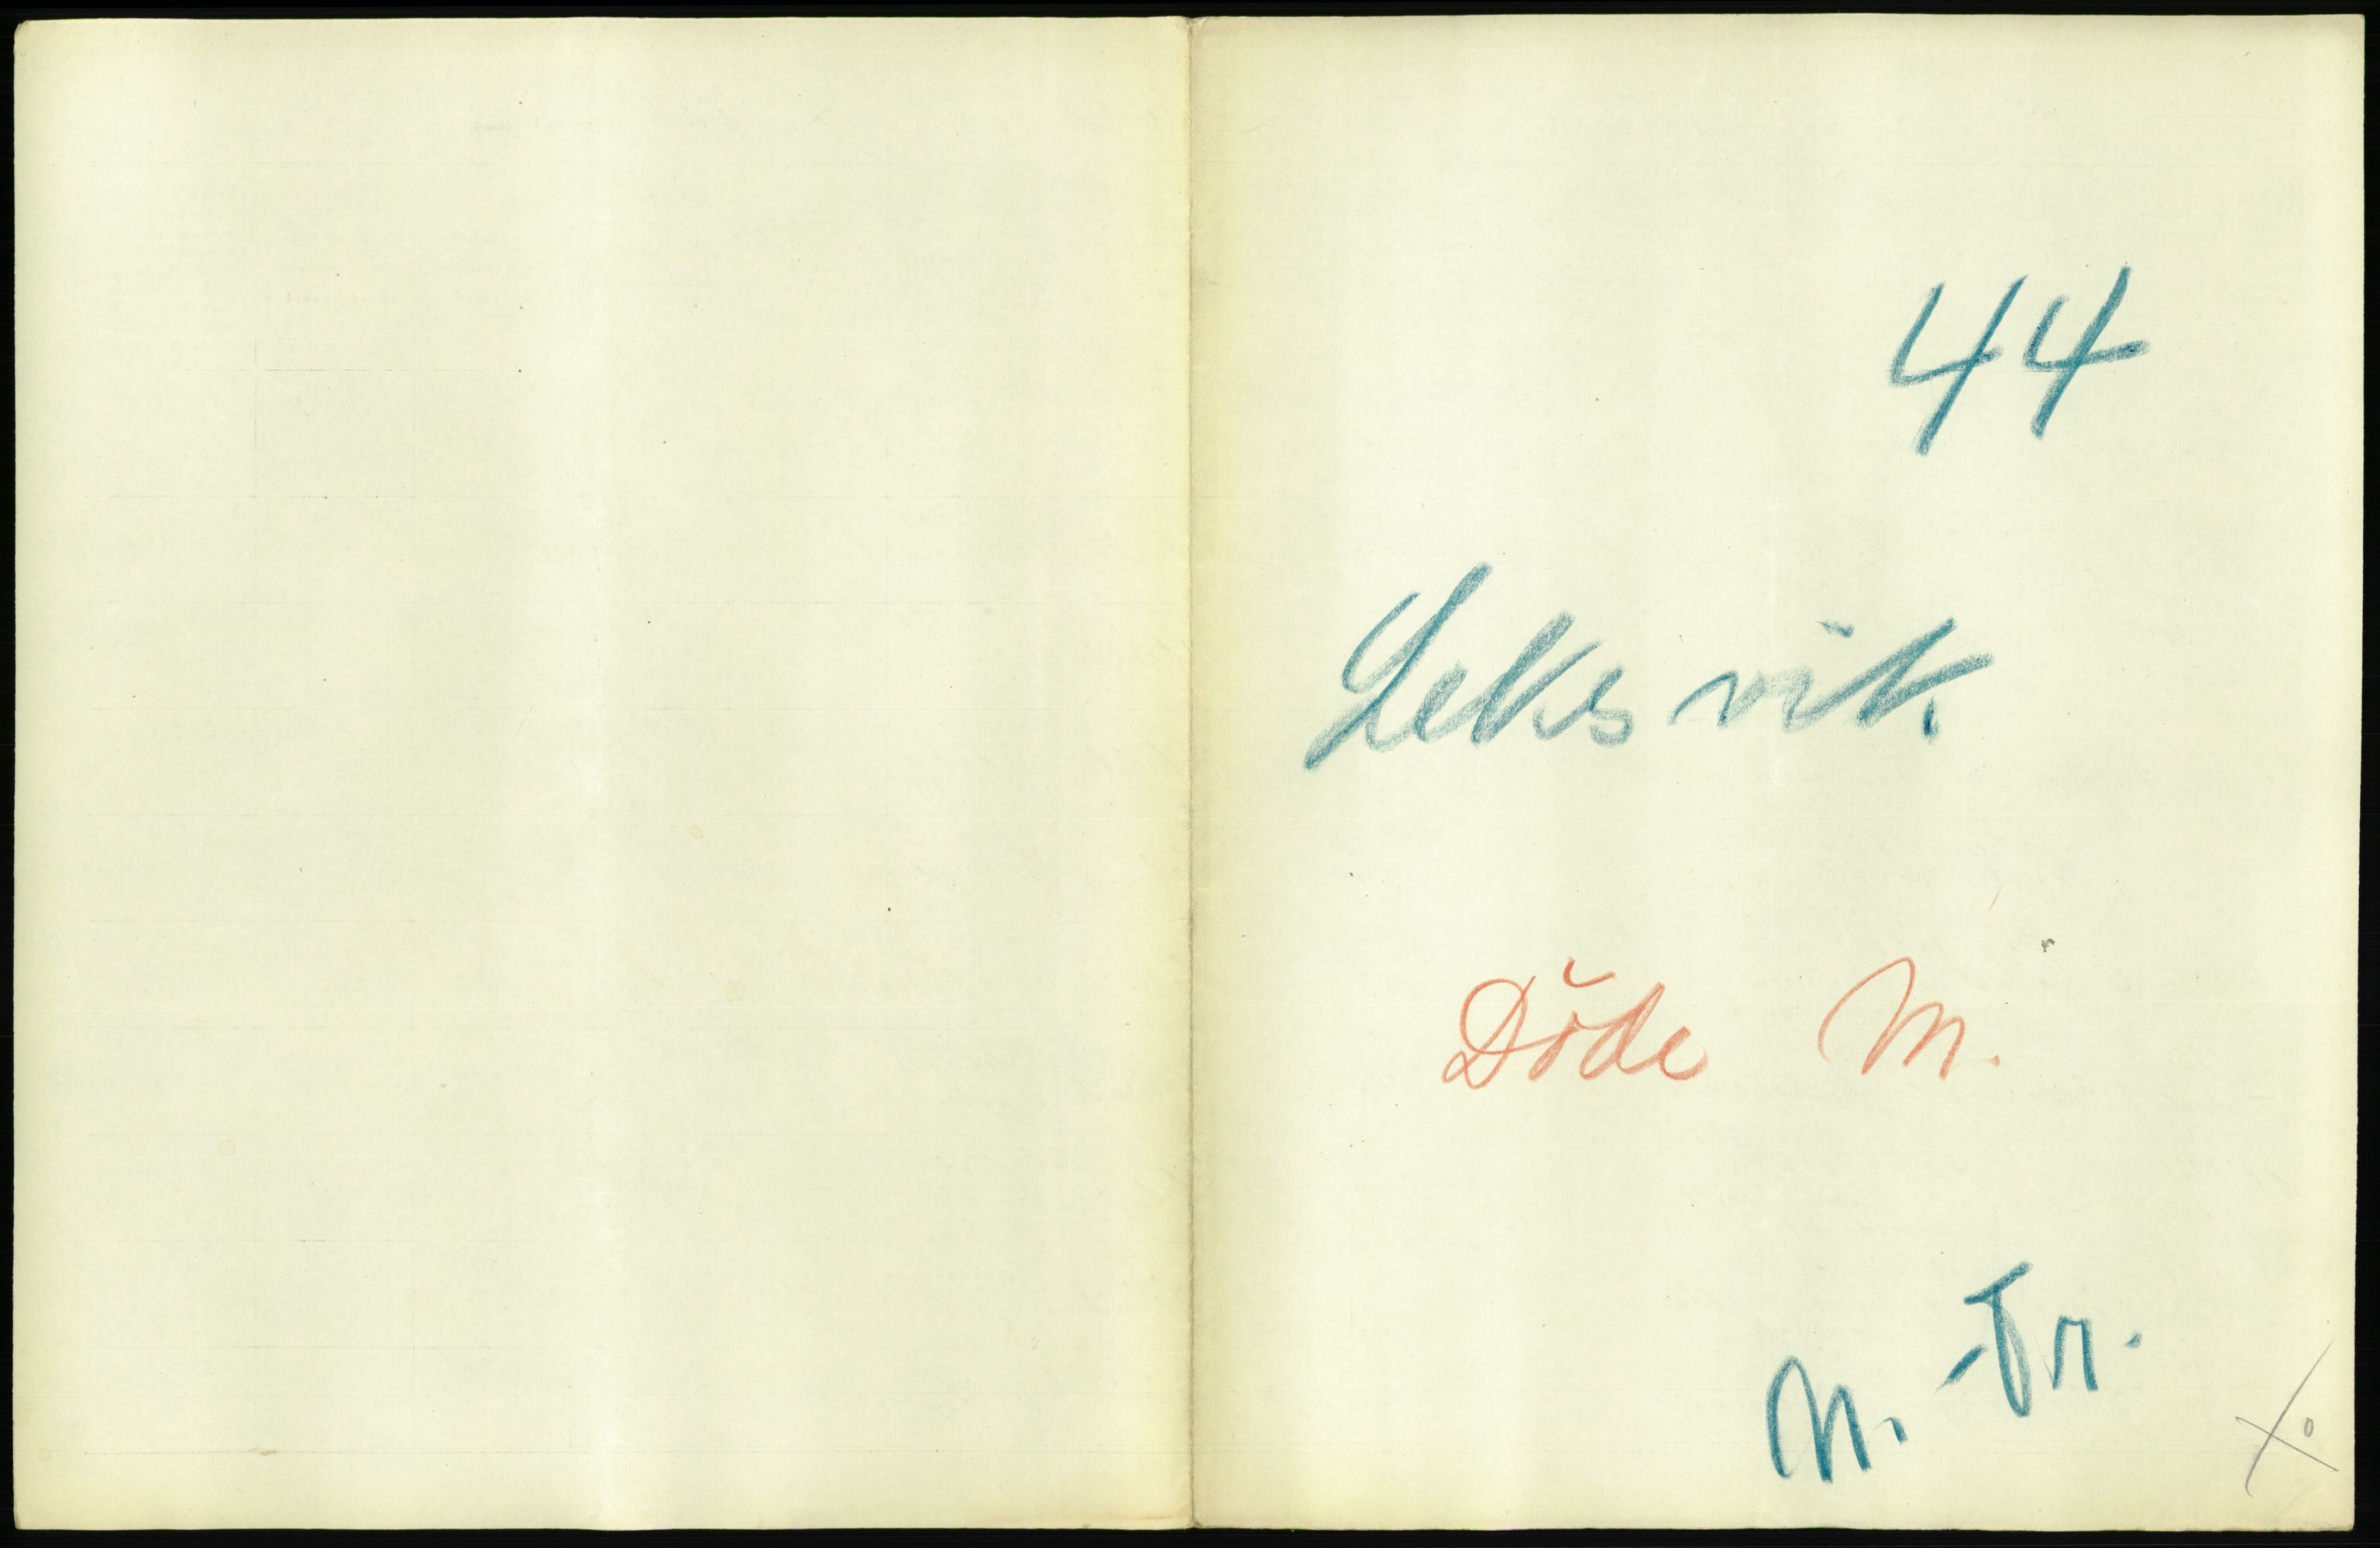 44
Leksvik
Döde M.
N. Tr.